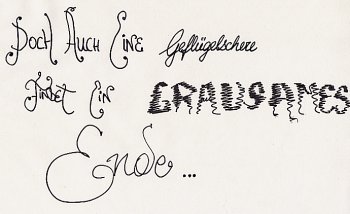 Doch Auch Eine Geflügelschere
Findet Ein GRAUSAMES
Ende...